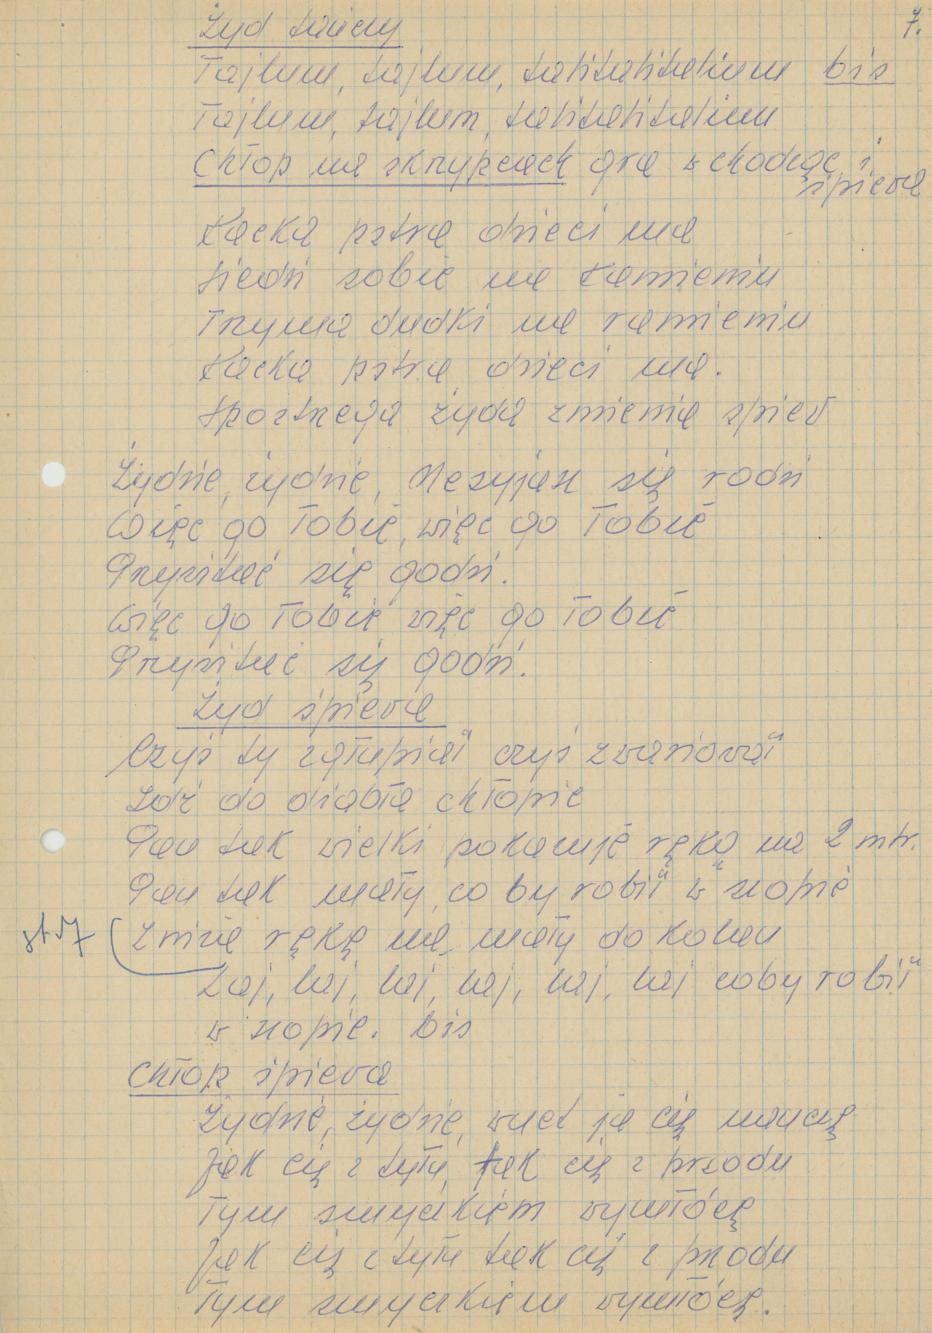 7.
Żyd tańczy
Tajlum, tajlum, talitalitalium bis
Tajlum, tajlum, talitalitalium
Chłop na skrzypcach gra wchodząc i
śpieva
Kacka pstra dzieci ma
siedzi sobie na kamieniu
Trzyma dudki na ramieniu
Kacka pstra dzieci ma.
Spostrzega żyda zmienia śpiev
Żydzie, żydzie, Mesyjasz się rodzi
Więc go Tobie, więc go Tobie
Przyvitać się godzi.
Więc go Tobie więc go Tobie
Przyvitać się godzi.
Żyd śpieva
Czyś ty zgłupiał czyś zvariovał
Idź do diabła chłopie
Pan tak vielki pokazuje ręką na 2 mtr.
Pan tak mały, co by robił w szopie
Zniża rękę na mały do kolan
Laj, laj, laj, laj, laj, laj coby robił
w szopie. bis
Chłop śpieva
Żydzie, żydzie, wnet ja cię nauczę
Jak cię z tyłu, tak cię z przodu
Tym smyczkiem vymłócę
Jak cię z tyłu tak cię z przodu
Tym smyczkiem vymłócę.